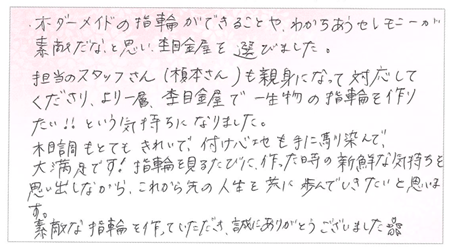 ・オーダーメイドの指輪ができることや、わかちあうセレモニーが
素敵だな、と思い、杢目金屋を選びました。
担当のスタッフさん(榎本さん)も親身になって対応して
くださり、より一層、杢目金屋で一生物の指輪を作り
たい!!という気持ちになりました。
木目調もとてもきれいで、付け心地も手に馴染んで、
大満足です!指輪を見るたびに、作った時の新鮮な気持ちを
思い出しながら、これから先の人生を共に歩んでいきたいと思いま
す。
素敵な指輪を作っていただき、誠にありがとうございました